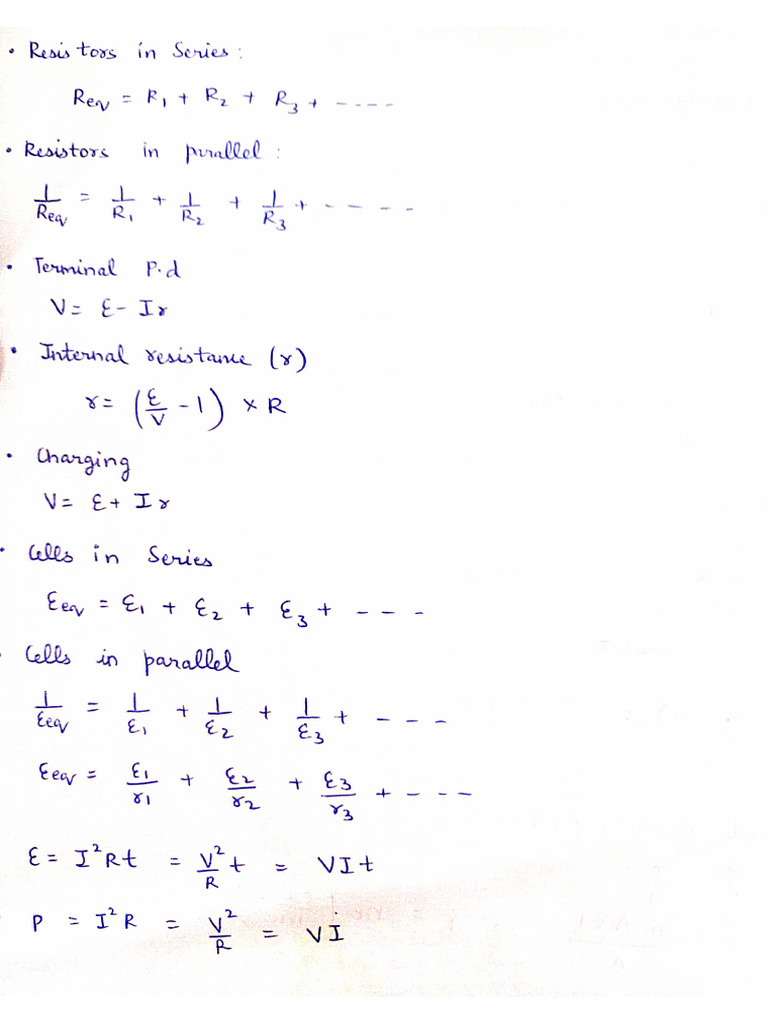 • Resistors in Series :
Req = R₁ + R₂ + R₃ + ----
• Resistors in parallel :
1/Req = 1/R₁ + 1/R₂ + 1/R₃ + - - - -
• Terminal P.d
V = ε - Ir
• Internal resistance (r)
r = (ε/V - 1) × R
• Charging
V = ε + Ir
• Cells in Series
εeq = ε₁ + ε₂ + ε₃ + - - -
• Cells in parallel
1/εeq = 1/ε₁ + 1/ε₂ + 1/ε₃ + - - -
εeq = ε₁/r₁ + ε₂/r₂ + ε₃/r₃ + - - - -
ε = I²Rt = V²/R t = VIt
P = I²R = V²/R = VI